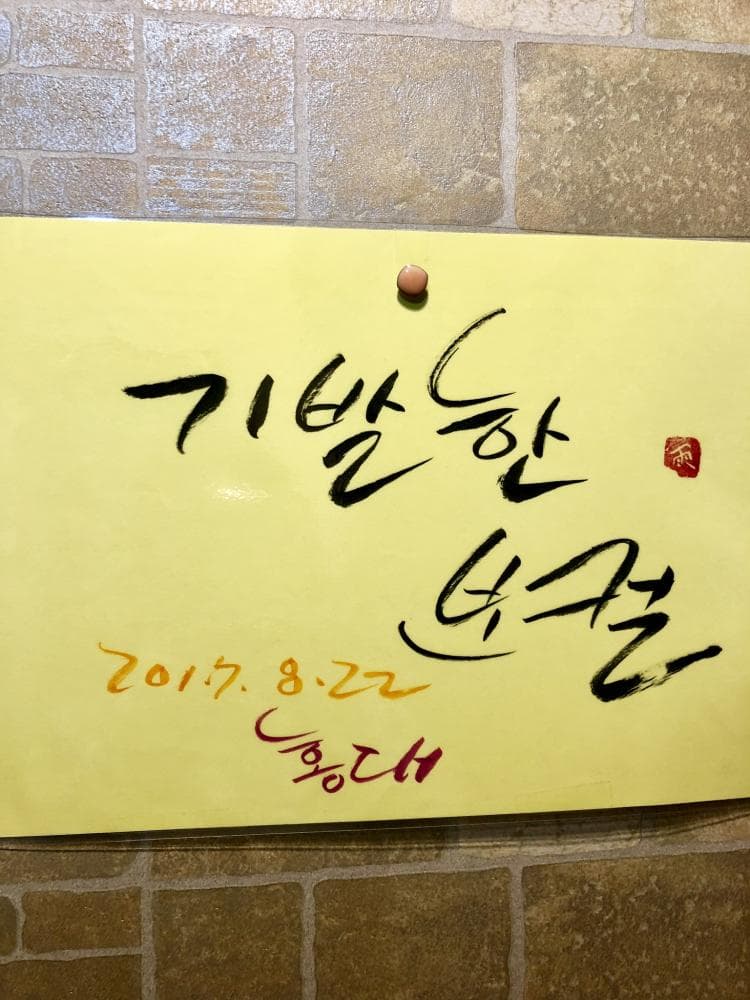 기발한
보컬
2017.8.22
홍대